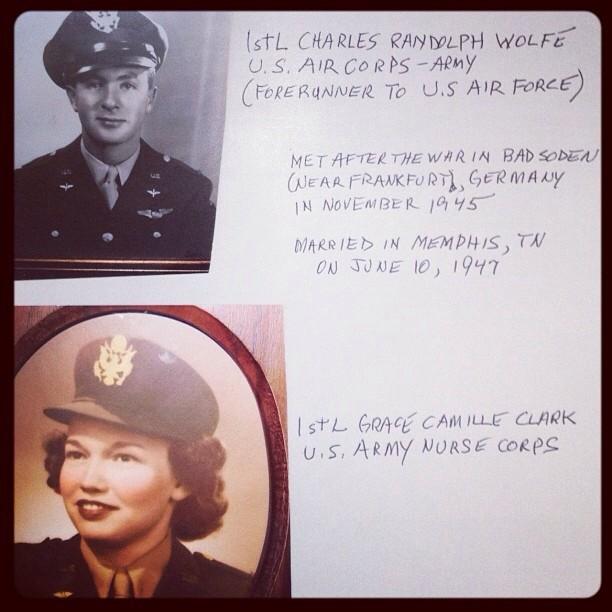 1st L CHARLES RANDOLPH WOLFE
U.S. AIR CORPS - ARMY
(FORERUNNER TO U.S AIR FORCE)
MET AFTER THE WAR IN BAD SODEN
(NEAR FRANKFURT), GERMANY
IN NOVEMBER 1945
MARRIED IN MEMPHIS, TN
ON JUNE 10, 1947
1st L GRACE CAMILLE CLARK
U.S. ARMY NURSE CORPS